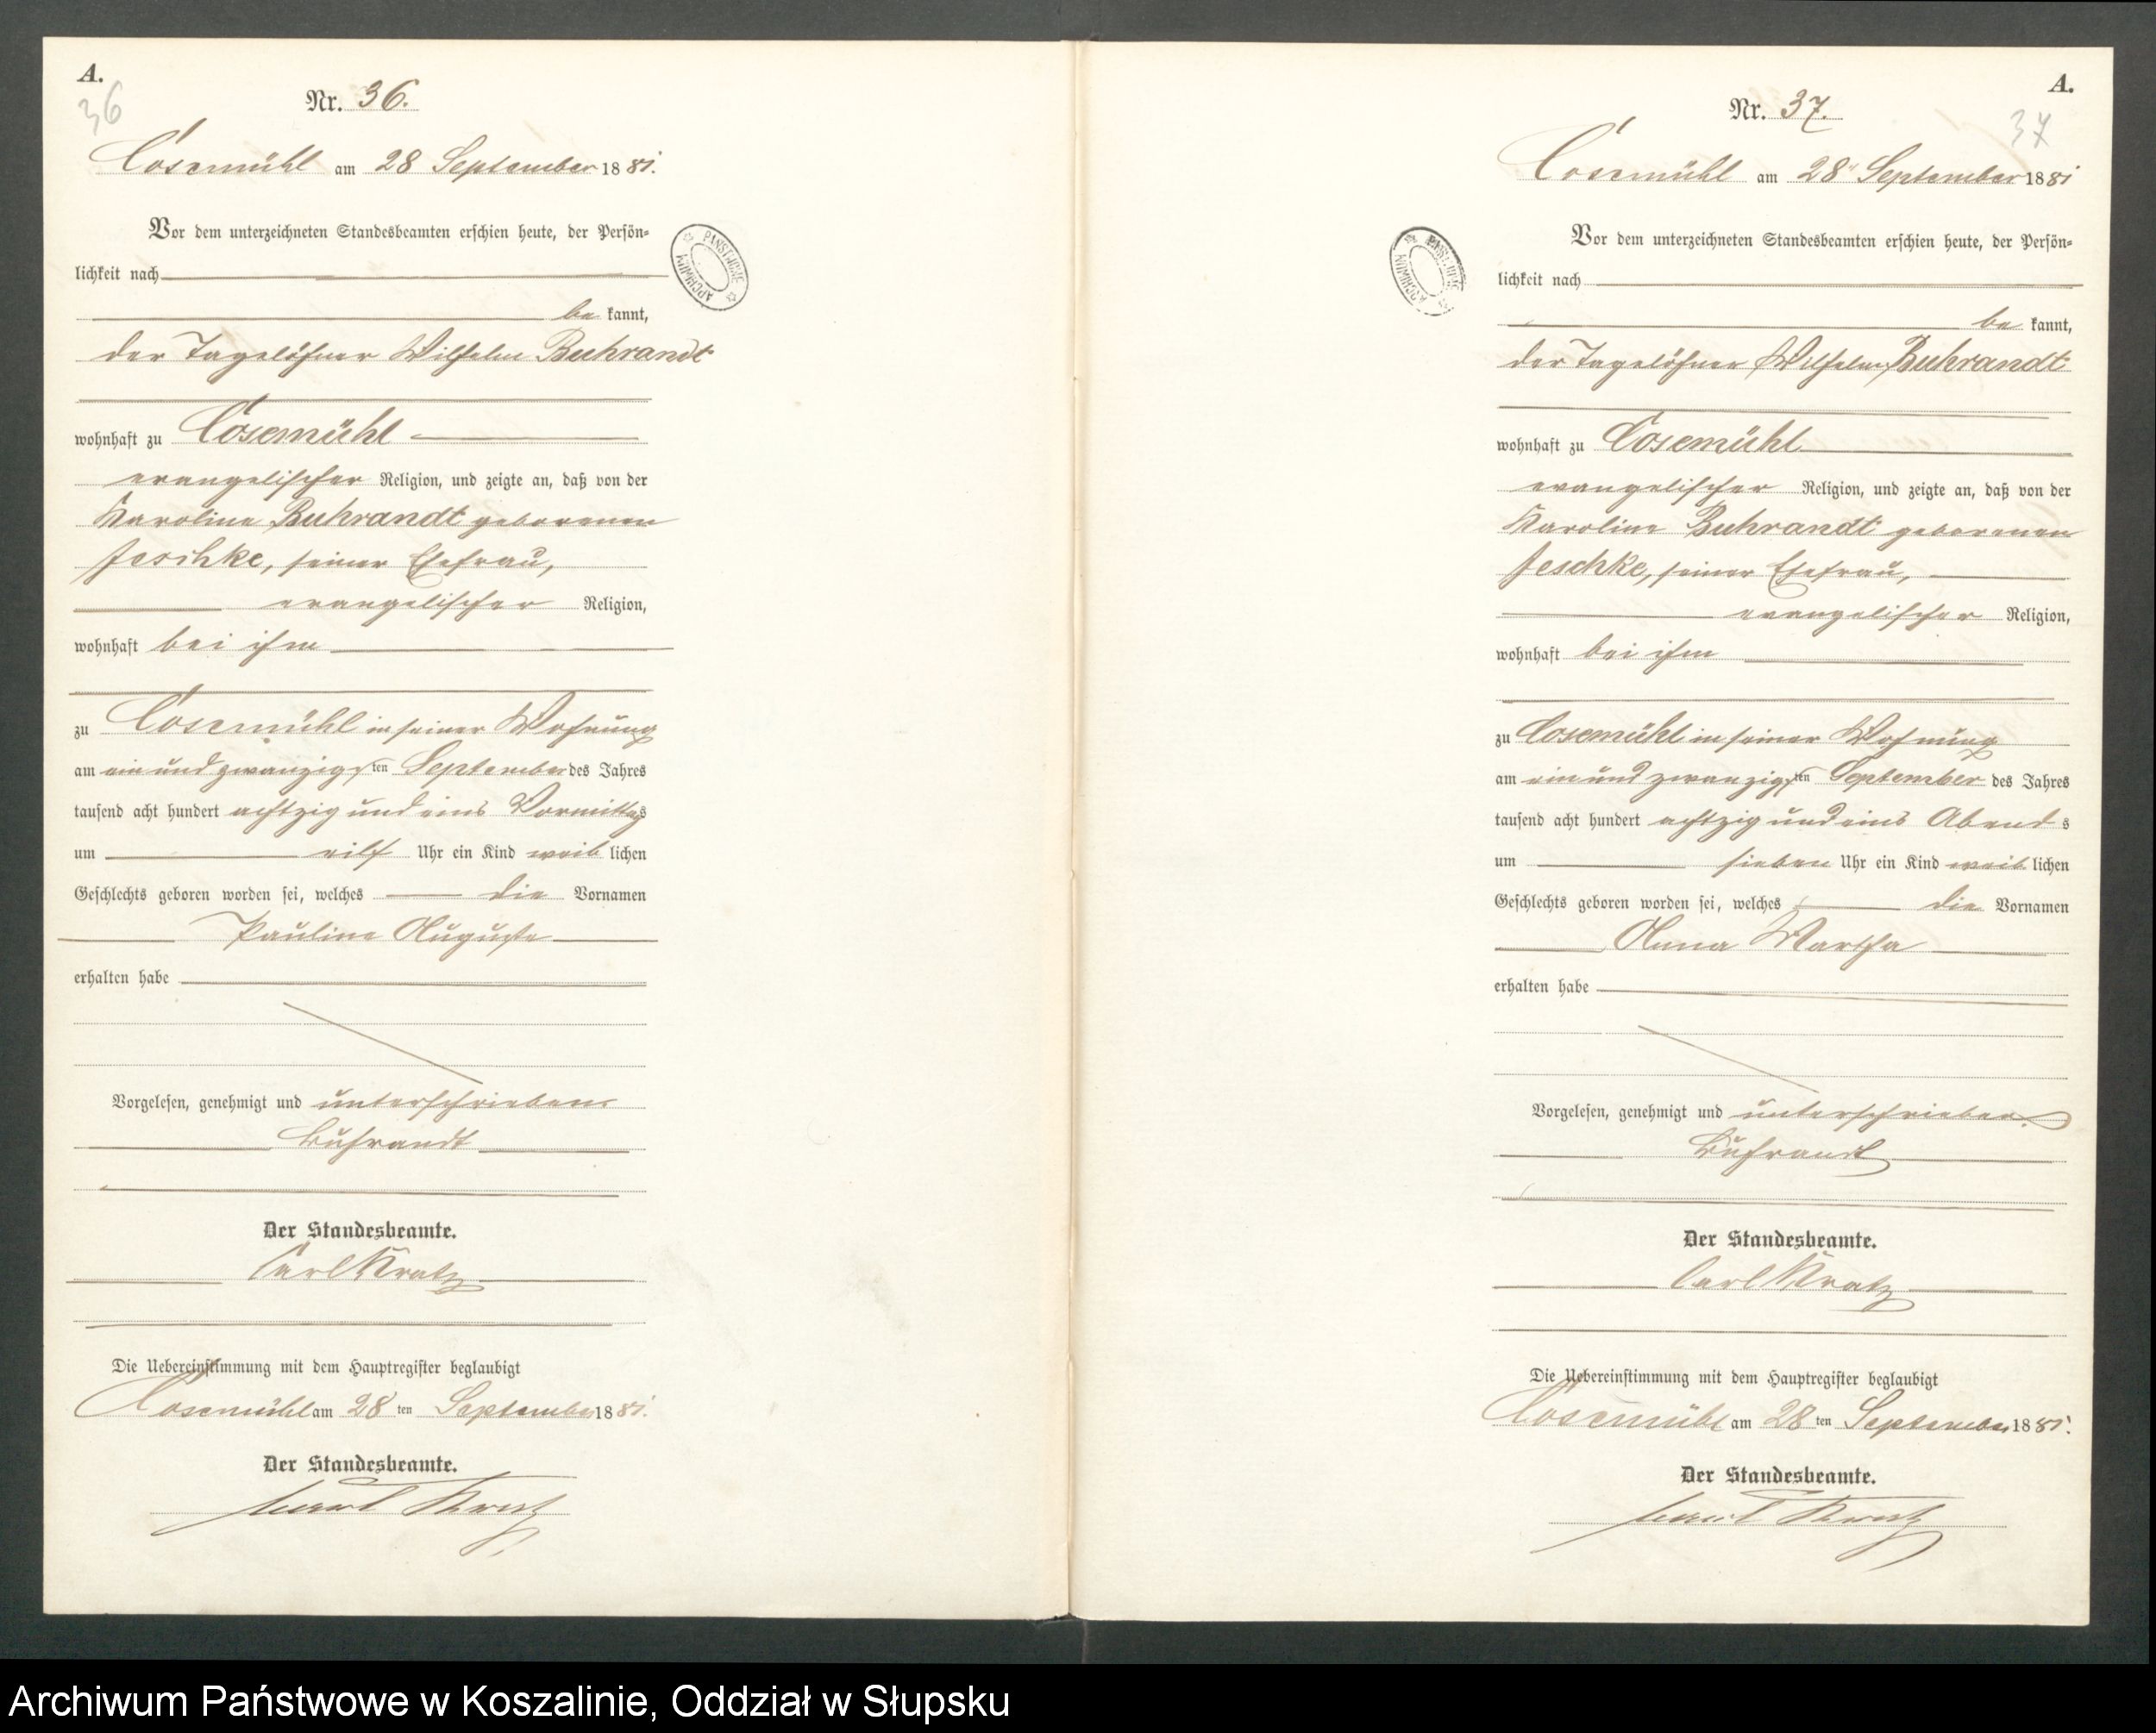 A.
36
Nr. 36.
Cosemühl am 28 September 1881.
Vor dem unterzeichneten Standesbeamten erschien heute, der Persön=
lichkeit nach
be kannt,
der Tagelöhner Wilhelm Buhrandt
wohnhaft zu Cosemühl
evangelischer Religion, und zeigte an, daß von der
Karoline Buhrandt geborenen
Jeschke, seiner Ehefrau,
evangelischer Religion,
wohnhaft bei ihm
zu Cosemühl in seiner Wohnung
am ein und zwanzigsten September des Jahres
tausend acht hundert achtzig und eins Vormittags
um eilf Uhr ein Kind weib lichen
Geschlechts geboren worden sei, welches die Vornamen
Pauline Auguste
erhalten habe
Vorgelesen, genehmigt und unterschrieben
Buhrandt
Der Standesbeamte.
Carl Kratz
Die Uebereinstimmung mit dem Hauptregister beglaubigt
Cosemühl am 28 ten September 1881.
Der Standesbeamte.
Carl Kratz
PAŃSTWOWE ARCHIWUM
A.
37
Nr. 37.
Cosemühl am 28 September 1881
Vor dem unterzeichneten Standesbeamten erschien heute, der Persön=
lichkeit nach
be kannt,
der Tagelöhner Wilhelm Buhrandt
wohnhaft zu Cosemühl
evangelischer Religion, und zeigte an, daß von der
Karoline Buhrandt geborenen
Jeschke, seiner Ehefrau,
evangelischer Religion,
wohnhaft bei ihm
zu Cosemühl in seiner Wohnung
am ein und zwanzigsten September des Jahres
tausend acht hundert achtzig und eins Abends
um sieben Uhr ein Kind weib lichen
Geschlechts geboren worden sei, welches die Vornamen
Anna Martha
erhalten habe
Vorgelesen, genehmigt und unterschrieben.
Buhrandt
Der Standesbeamte.
Carl Kratz
Die Uebereinstimmung mit dem Hauptregister beglaubigt
Cosemühl am 28 ten September 1881.
Der Standesbeamte.
Carl Kratz
PAŃSTWOWE ARCHIWUM
Archiwum Państwowe w Koszalinie, Oddział w Słupsku